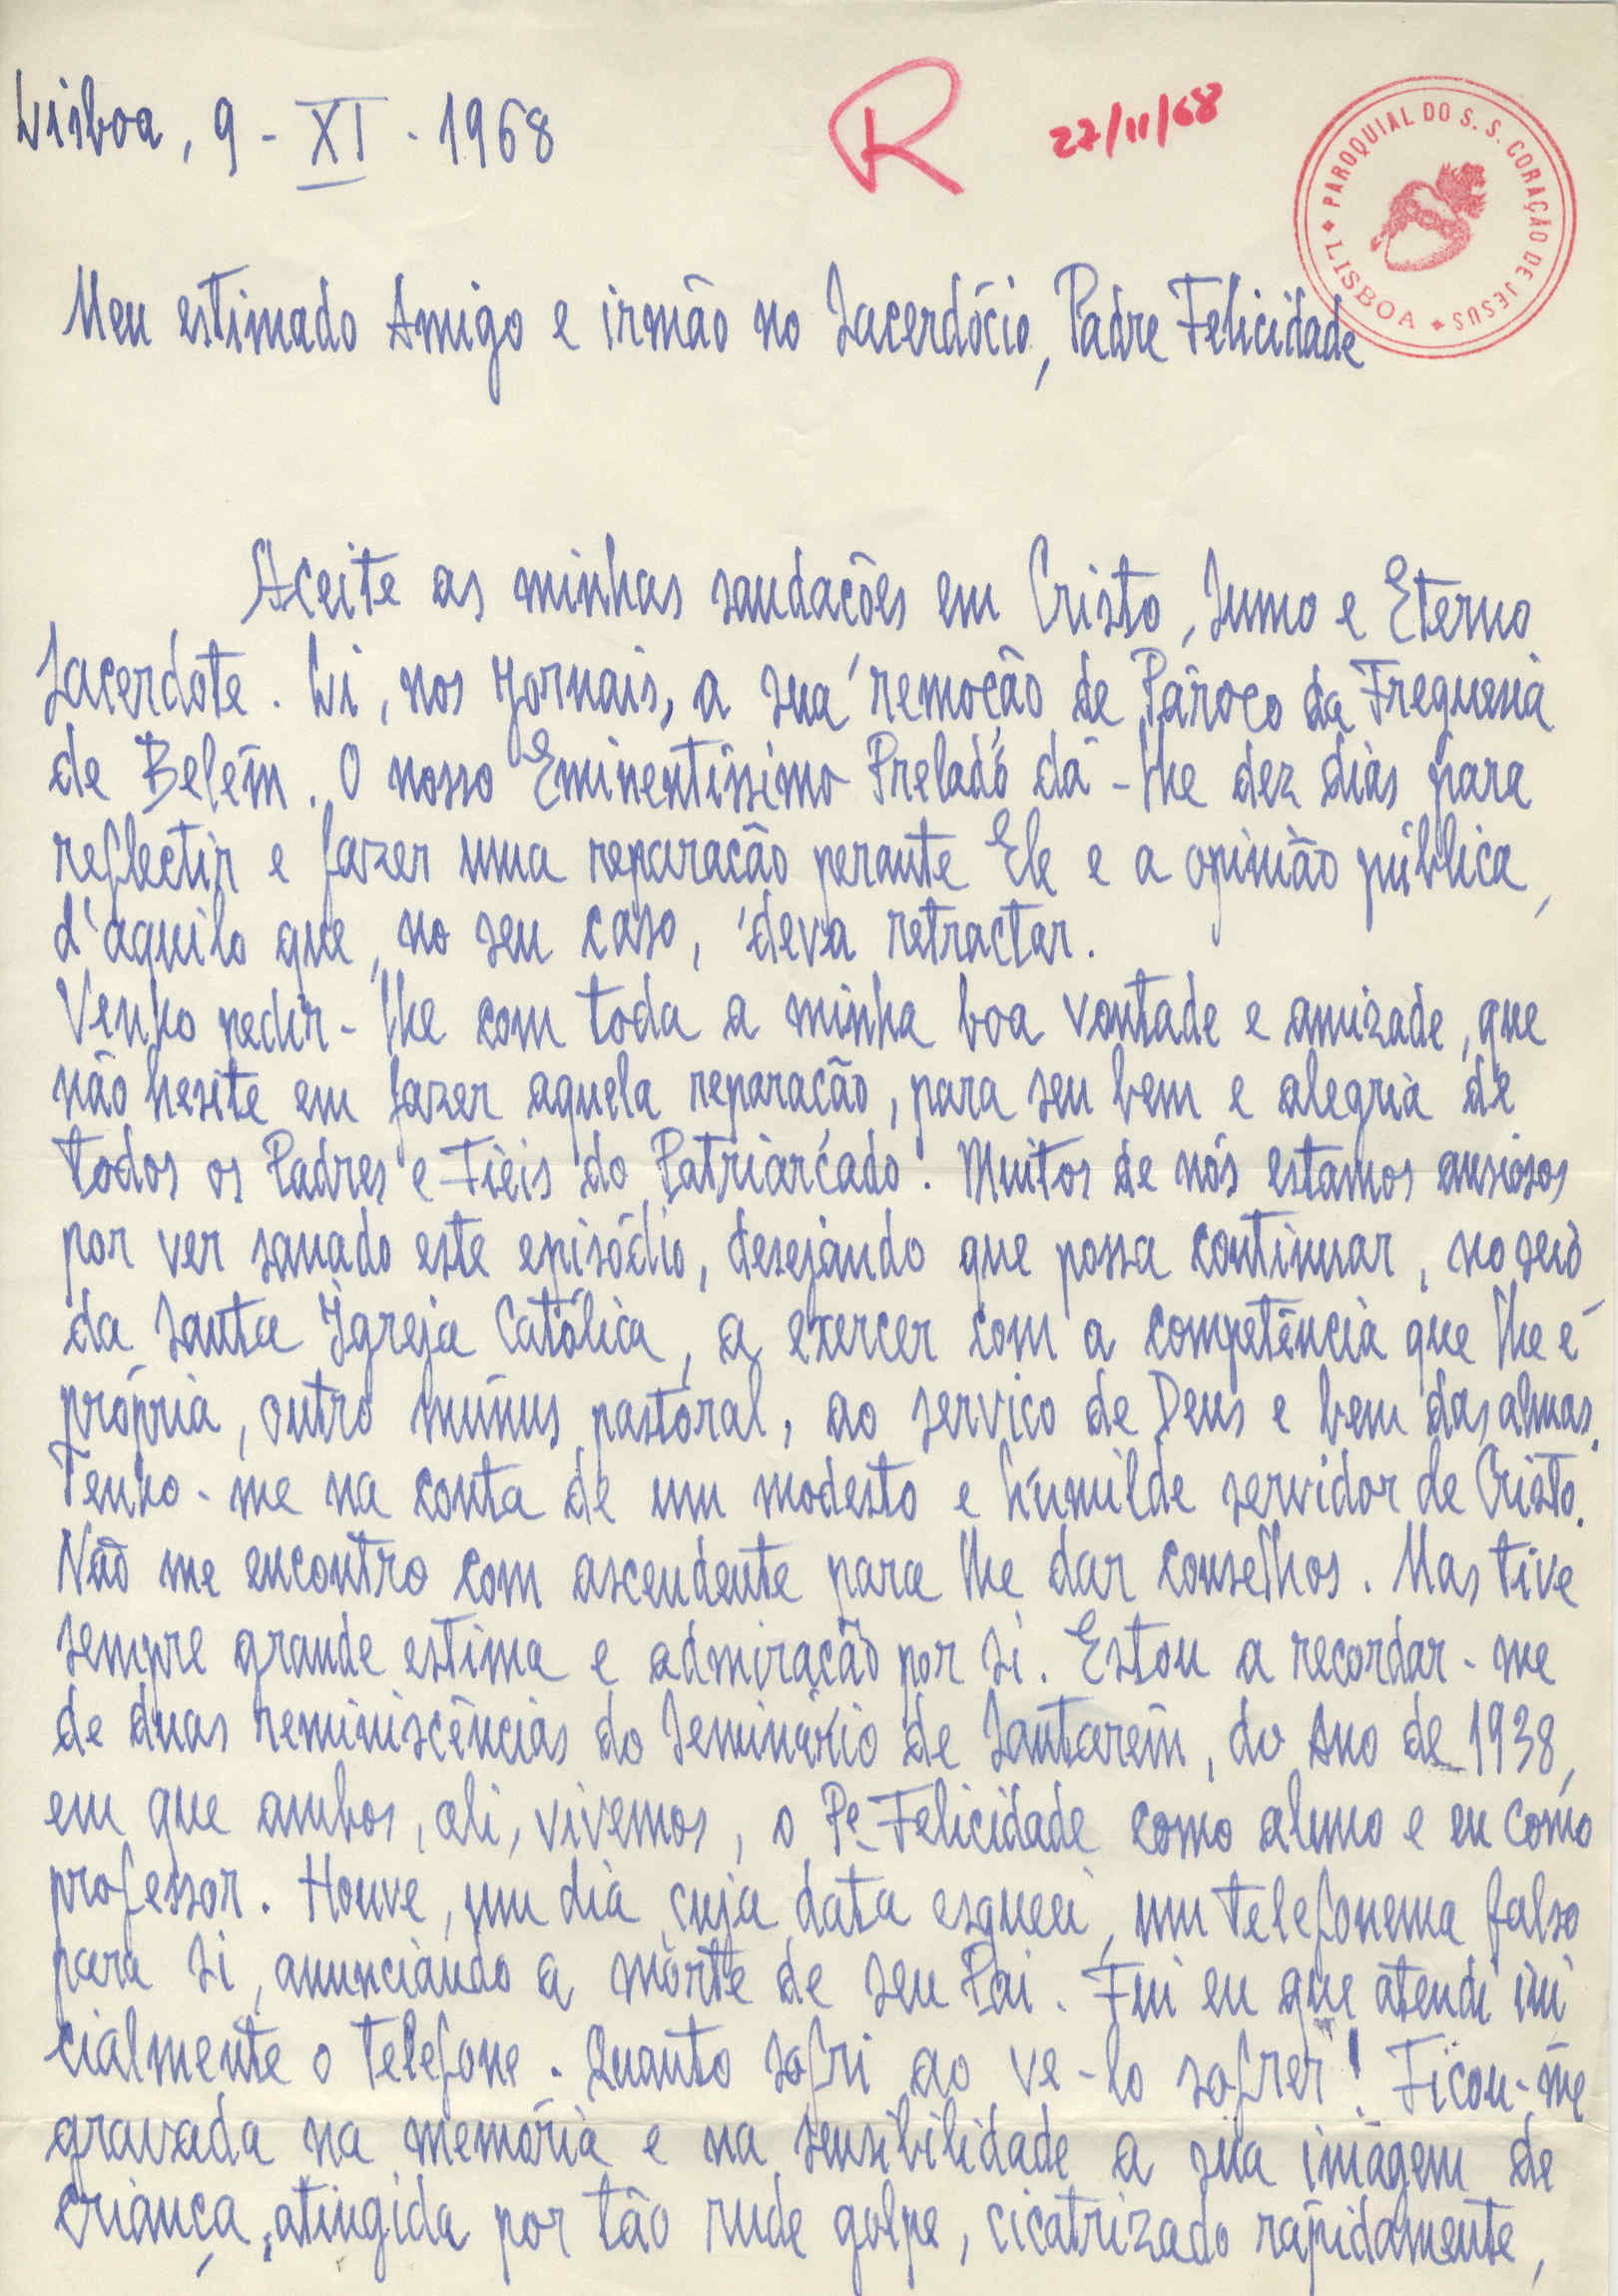 Lisboa, 9 - XI - 1968
R
27/11/68
PAROQUIAL DO S. S. CORAÇÃO DE JESUS
LISBOA
Meu estimado Amigo e irmão no Sacerdócio, Padre Felicidade
Aceite as minhas saudações em Cristo, Sumo e Eterno
Sacerdote. Li, nos Jornais, a sua remoção de Pároco da Freguesia
de Belém. O nosso Eminentíssimo Prelado dá-lhe dez dias para
reflectir e fazer uma reparação perante Ele e a opinião pública,
d'aquilo que, no seu caso, deva retractar.
Venho pedir-lhe com toda a minha boa vontade e amizade, que
não hesite em fazer aquela reparação, para seu bem e alegria de
todos os Padres e Fiéis do Patriarcado. Muitos de nós estamos ansiosos
por ver sanado este episódio, desejando que possa continuar, no seio
da Santa Igreja Católica, a exercer com a competência que lhe é
própria, outro múnus pastoral, ao serviço de Deus e bem das almas.
Tenho-me na conta de um modesto e humilde servidor de Cristo.
Não me encontro com ascendente para lhe dar conselhos. Mas tive
sempre grande estima e admiração por si. Estou a recordar-me
de duas reminiscências do Seminário de Santarém, do Ano de 1938,
em que ambos, ali, vivemos, o Pe Felicidade como aluno e eu como
professor. Houve, um dia cuja data esqueci, um telefonema falso
para si, anunciando a morte de seu Pai. Fui eu que atendi ini
cialmente o telefone. Quanto sofri ao ve-lo sofrer! Ficou-me
gravada na memória e na sensibilidade a sua imagem de
criança, atingida por tão rude golpe, cicatrizado rápidamente,